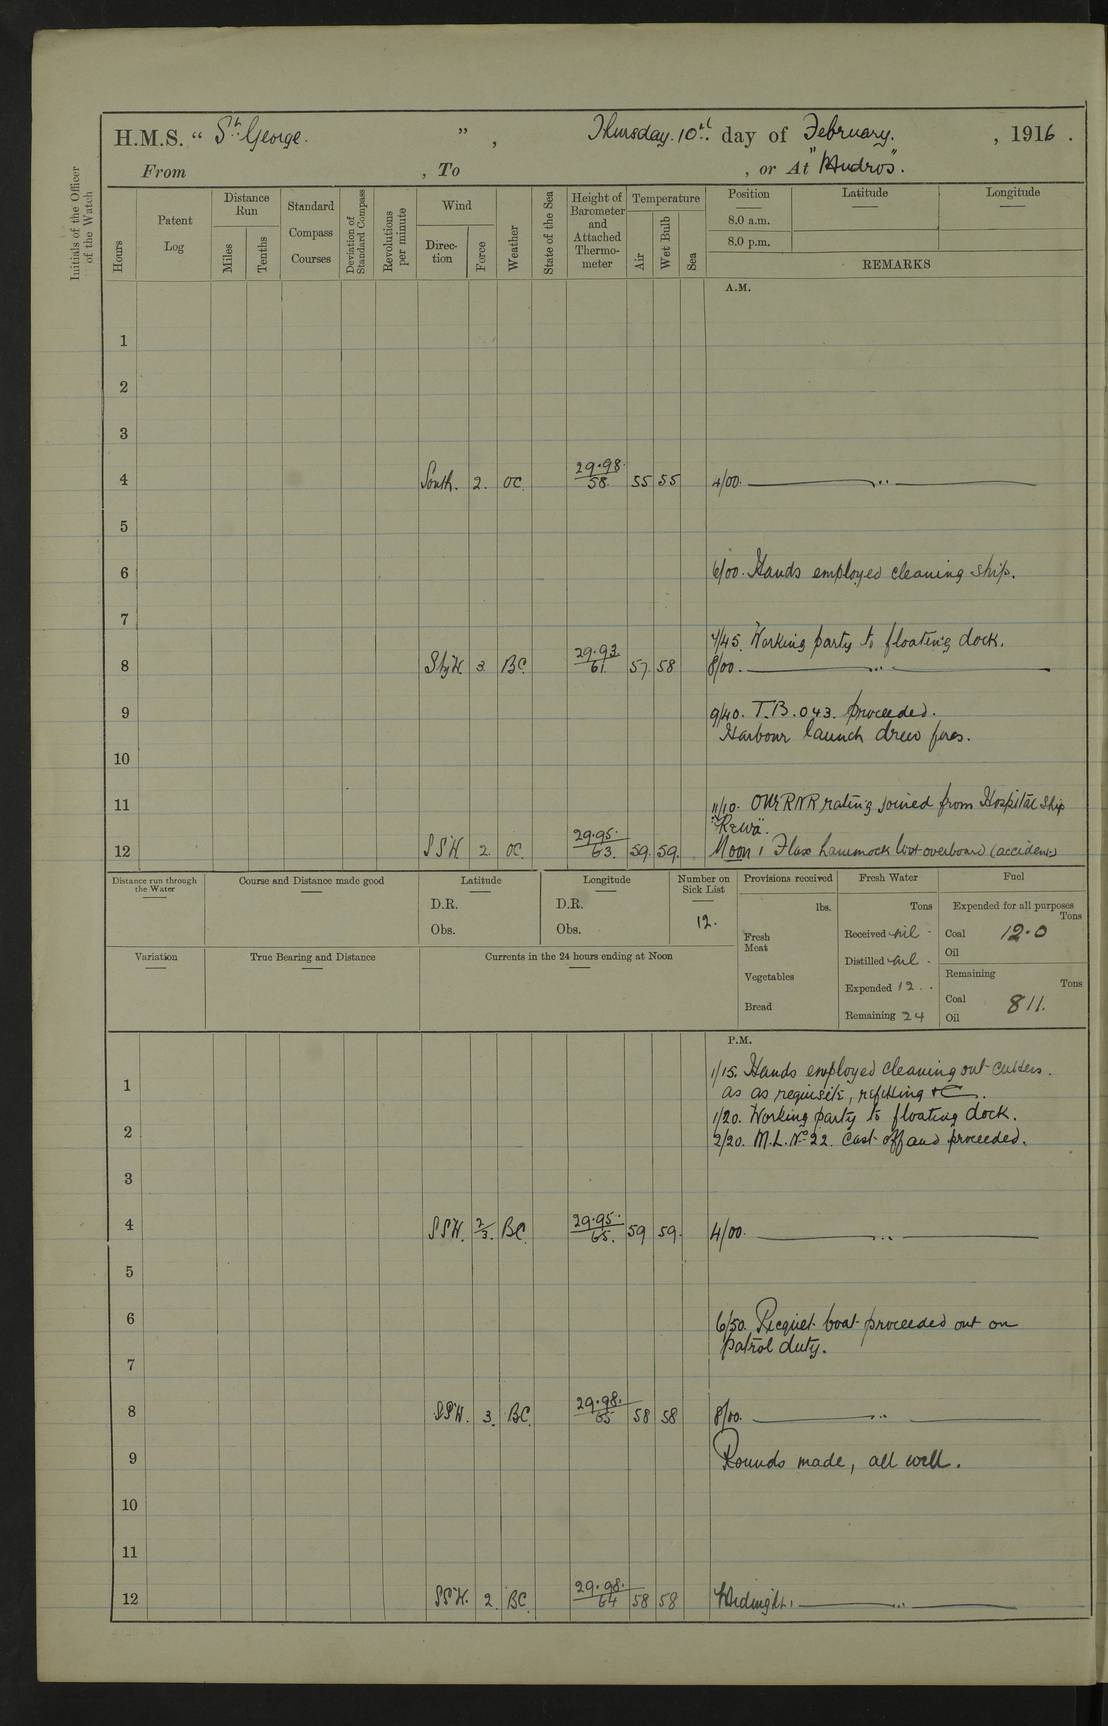 H.M.S. “ St. George. ”, Thursday. 10th. day of February. , 1916 .
From , To , or At "Mudros".
Initials of the Officer of the Watch
Hours
Patent Log
Distance Run
Miles
Tenths
Standard Compass Courses
Deviation of Standard Compass
Revolutions per minute
Wind
Direc-tion
Force
Weather
State of the Sea
Height of Barometer and Attached Thermo-meter
Temperature
Air
Wet Bulb
Sea
Position
Latitude
Longitude
8.0 a.m.
8.0 p.m.
REMARKS
A.M.
1
2
3
4 South. 2. OC. 29.98. 58. 55 55 4/00.
5
6 6/00. Hands employed cleaning ship.
7
7/45. Working party to floating dock.
8 S by W. 3. BC. 29.93. 61. 57 58 8/00.
9 9/40. T.B. 043. proceeded.
Harbour launch drew fires.
10
11 11/10. One RNR rating joined from Hospital Ship
"Rewa".
12 SSW 2. OC. 29.95. 63. 59. 59. Noon 1 Flax hammock lost overboard (accident)
Distance run through the Water
Course and Distance made good
Latitude
D.R.
Obs.
Longitude
D.R.
Obs.
Number on Sick List
12.
Provisions received
lbs.
Fresh Meat
Vegetables
Bread
Fresh Water
Tons
Received nil -
Distilled nil .
Expended 12 . .
Remaining 24
Fuel
Expended for all purposes
Tons
Coal 12.0
Oil
Remaining
Tons
Coal 811.
Oil
Variation
True Bearing and Distance
Currents in the 24 hours ending at Noon
P.M.
1/15. Hands employed cleaning out cutters.
1 as as requisite, refitting &c.
1/20. Working party to floating dock.
2 2/20. M.L. No 22. Cast off and proceeded.
3
4 SSW. 2/3. BC. 29.95. 65. 59 59. 4/00.
5
6 6/50. Picquet boat proceeded out on
patrol duty.
7
8 SSW. 3. BC. 29.98. 65 58 58 8/00.
9 Rounds made, all well.
10
11
12 SSW. 2. BC. 29.98. 64 58 58 Midnight.